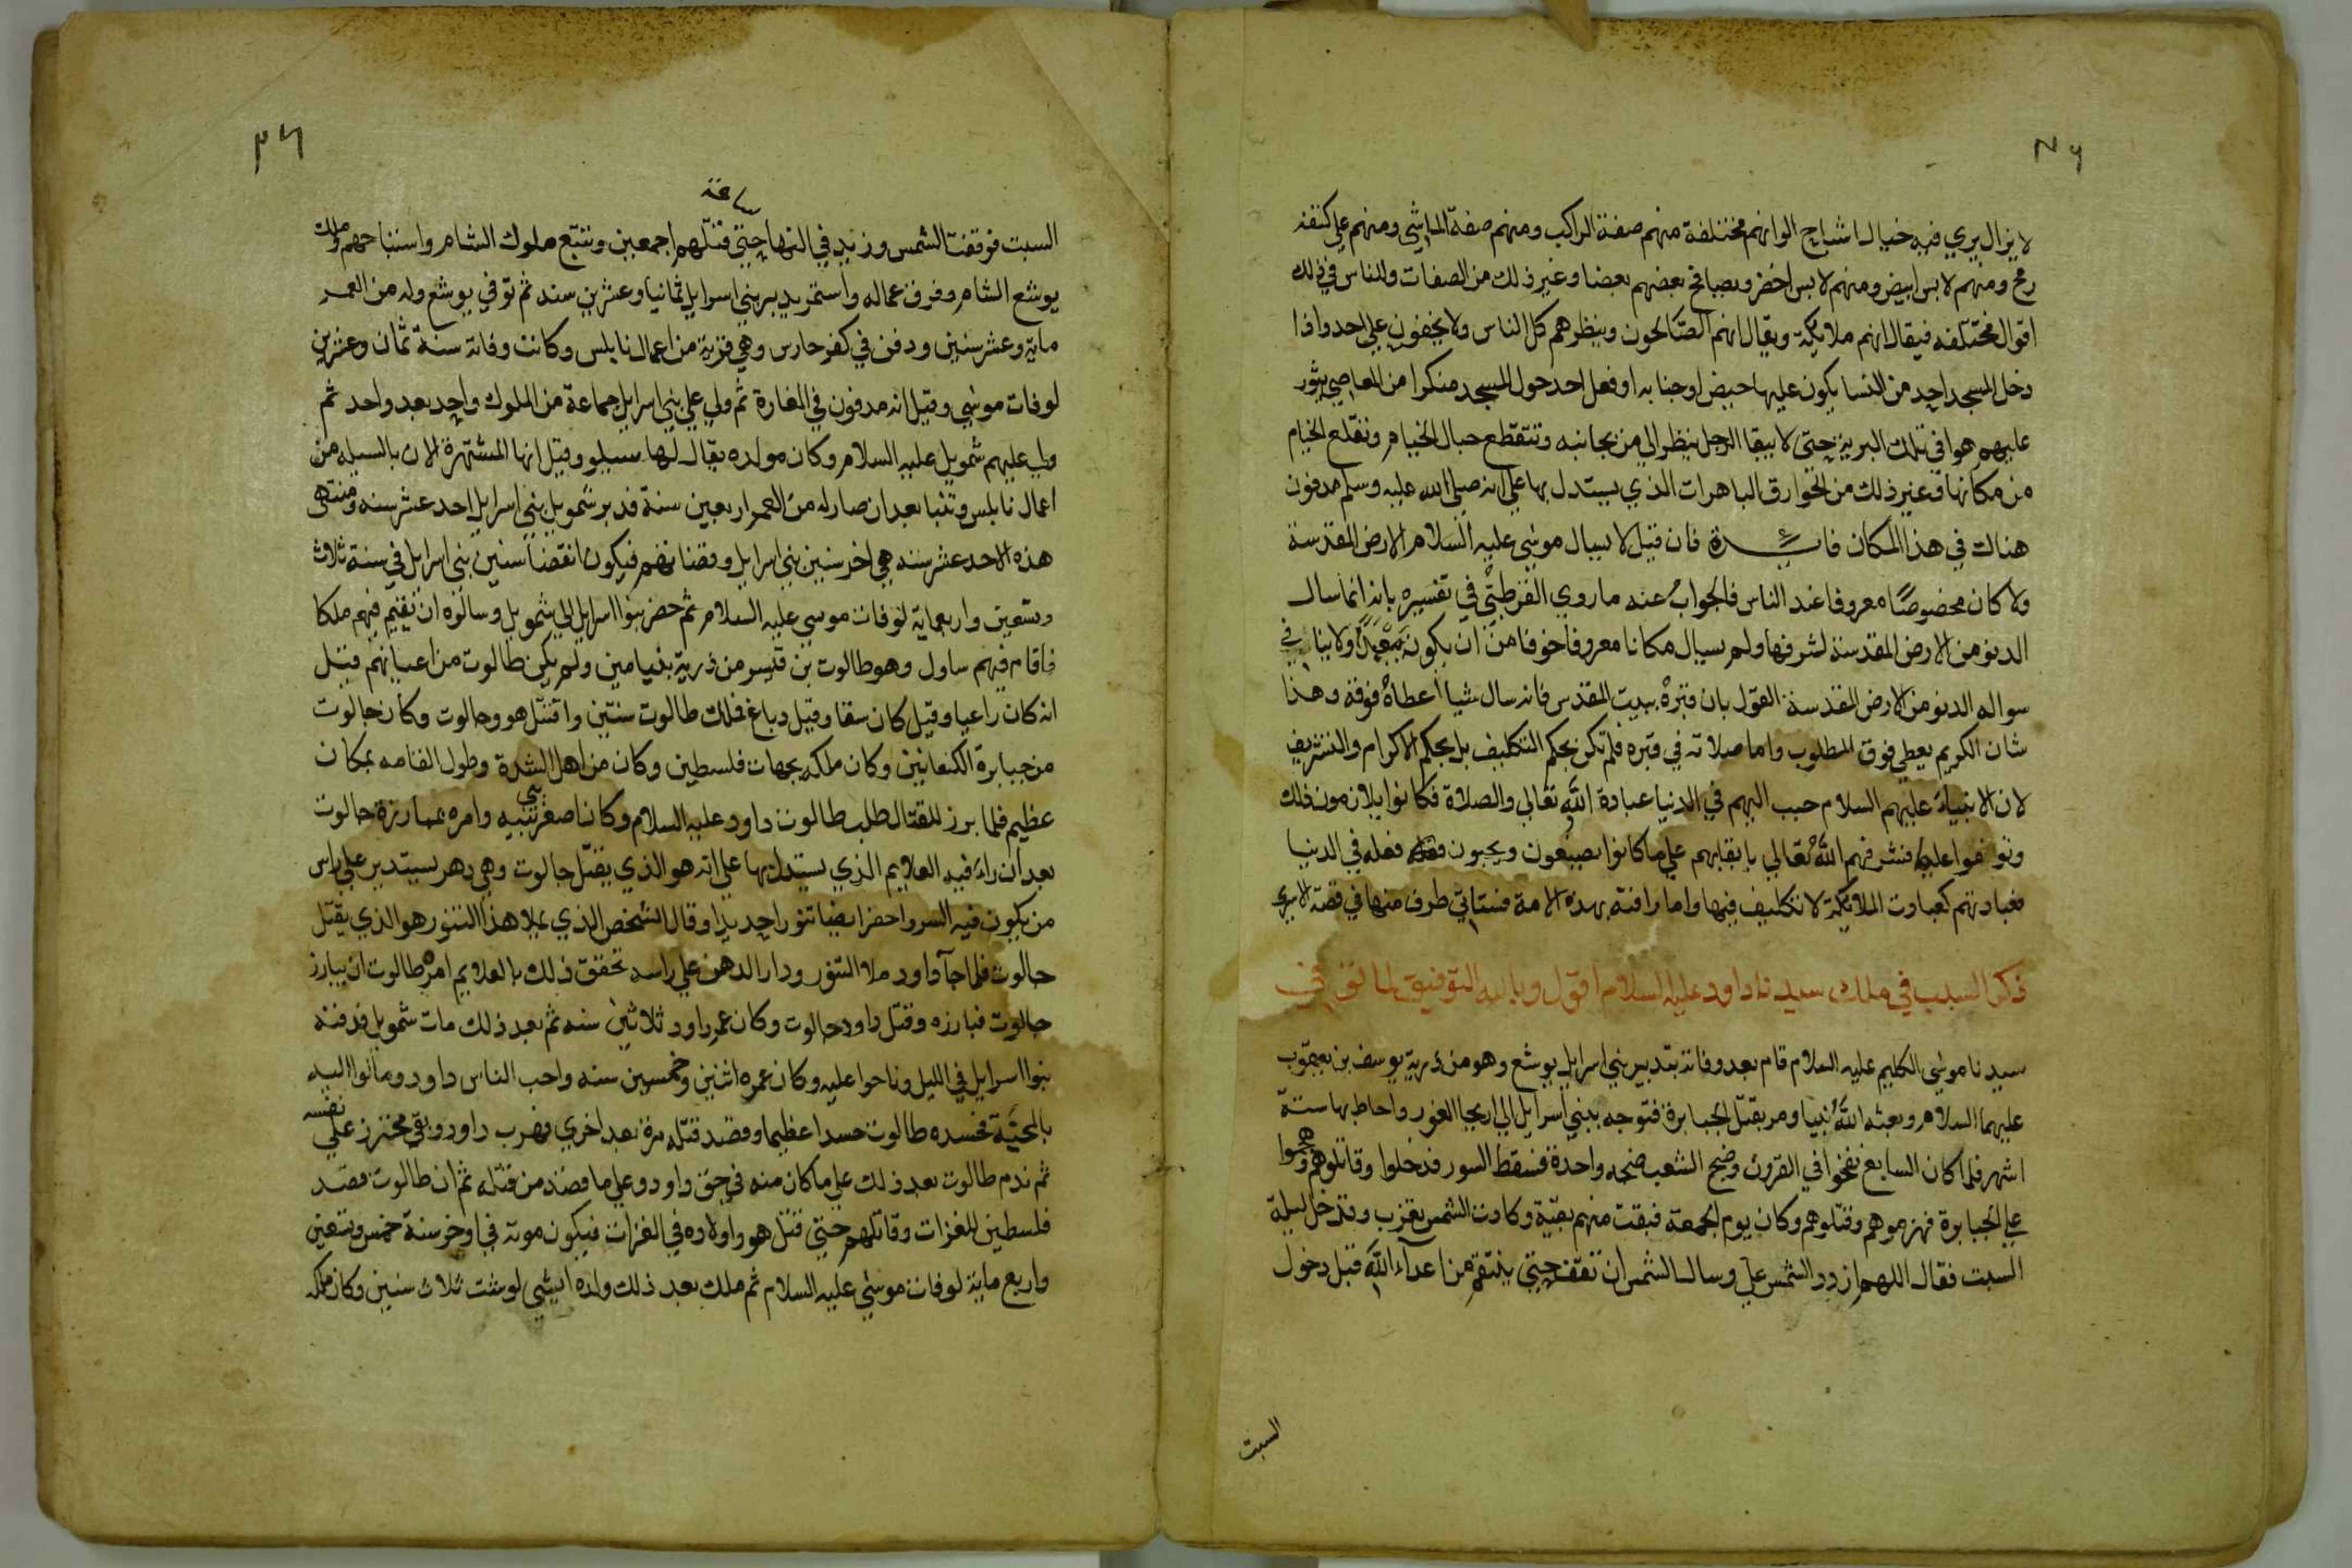 لا يزال يري فيه خيال اشباح الوانهم مختلفة منهم صفة الراكب ومنهم صفة الماشي ومنهم علي كتفه
رمح ومنهم لابس ابيض ومنهم لابس اخضر ويصافح بعضهم بعضا وغير ذلك من الصفات وللناس في ذلك
اقوال مختلفه فيقال انهم ملايكة ويقال انهم الصالحون وينظرهم كل الناس ولا يخفون علي احد واذا
دخل المسجد احد من النسا يكون عليها حيض او جنابه او فعل احد حول المسجد منكرا من المعاصي يثور
عليهم هوا في تلك البرية حتى لا يبقا الرجل ينظر الي من بجانبه وتتقطع حبال الخيام وتقلع الخيام
من مكانها وغير ذلك من الخوارق الباهرات الذي يستدل بها علي انه صلى الله عليه وسلم مدفون
هناك في هذا المكان فايدة فان قيل لا يسال موسى عليه السلام الارض المقدسة
ولا كان مخصوصا معروفا عند الناس فالجواب عنه ما روي القرطبي في تفسيره بانه انما سال
الدنو من الارض المقدسة لشرفها ولم يسال مكانا معروفا خوفا من ان يكون معبدا ولا ينافي
سواله الدنو من الارض المقدسة القول بان قبره ببيت المقدس فانه سال شيا اعطاه فوقه وهذا
شان الكريم يعطي فوق المطلوب واما صلاته في قبره فلم تكن بحكم التكليف بل بحكم الاكرام والتشريف
لان الانبياء عليهم السلام حبب اليهم في الدنيا عبادة الله تعالي والصلاة فكانوا يلازمون ذلك
وتوفوا عليه فشرفهم الله تعالي بابقايهم علي ما كانوا يصنعون ويحبون فعله في الدنيا
فعبادتهم كعبادت الملايكة لا تكليف فيها واما رافته بهذه الامة فستاتي طرف منها في قصة الاسري
ذكر السبب في ملك سيدنا داود عليه السلام اقول وبالله التوفيق لما توفي
سيدنا موسى الكليم عليه السلام قام بعد وفاته بتدبير بني اسرايل يوشع وهو من ذرية يوسف بن يعقوب
عليهما السلام وبعثه الله نبيا وامر بقتل الجبابرة فتوجه ببني اسرايل الي اريحا الغور واحاط بها ستة
اشهر فلما كان السابع نفخوا في القرون وضج الشعب ضجه واحدة فسقط السور فدخلوا وقاتلوهم وهجموا
علي الجبابرة فهزموهم وقتلوهم وكان يوم الجمعة فبقت منهم بقية وكادت الشمس تغرب وتدخل ليلة
السبت فقال اللهم ازدد الشمس علي وسال الشمس ان تقف حتي ينتقم من اعداء الله قبل دخول
السبت
السبت فوقفت الشمس وزيد في النهار ساعة حتي قتلهم اجمعين وتتبع ملوك الشام واستباحهم وملك
يوشع الشام وفرق عماله واستمر يدبر بني اسرايل ثمانيا وعشرين سنه ثم توفي يوشع وله من العمر
ماية وعشر سنين ودفن في كفر حارس وهي قرية من اعمال نابلس وكانت وفاته سنة ثمان وعشرين
لوفات موسى وقيل انه مدفون في المغارة ثم ولي علي بني اسرايل جماعة من الملوك واحد بعد واحد ثم
ولي عليهم شمويل عليه السلام وكان مولده يقال لها سيلو وقيل انها المشتهرة الان بالسيله من
اعمال نابلس وتنبا بعد ان صار له من العمر اربعين سنة فدبر شمويل بني اسرايل احد عشر سنه ومنتهي
هذه الاحد عشر سنه هي اخر سنين بني اسرايل وقضناتهم فيكون انقضا سنين بني اسرايل في سنة ثلاث
وتسعين واربعماية لوفات موسي عليه السلام ثم حضر بنوا اسرايل الي شمويل وسالوه ان يقيم فيهم ملكا
فاقام فيهم ساول وهو طالوت بن قيسر من ذرية بنيامين ولم يكن طالوت من اعيانهم فقيل
انه كان راعيا وقيل كان سقا وقيل دباغ فملك طالوت سنتين واقتتل هو وجالوت وكان جالوت
من جبابرة الكنعانيين وكان ملكه بجهات فلسطين وكان من اهل الشدة وطول القامه بمكان
عظيم فلما برز للقتال طلب طالوت داود عليه السلام وكان اصغر بنيه وامره بمبارزة جالوت
بعد ان راء فيه العلايم الذي يستدل بها علي انه هو الذي يقتل جالوت وهي دهر يستدير علي راس
من يكون فيه السر واحضر ايضا تنورا حديدا وقال الشخص الذي يملا هذا التنور هو الذي يقتل
جالوت فلما جآ داود ملا التنور ودار الدهن علي راسه تحقق ذلك بالعلايم امره طالوت ان يبارز
جالوت فبارزه وقتل داود جالوت وكان عمر داود ثلاثين سنه ثم بعد ذلك مات شمويل فدفنه
بنوا اسرايل في الليل وناحوا عليه وكان عمره اثنين وخمسين سنه واحب الناس داود ومالوا اليه
بالمحبة فحسده طالوت حسدا عظيما وقصد قتله مرة بعد اخري فهرب داود وبقي محترز علي نفسه
ثم ندم طالوت بعد ذلك علي ما كان منه في حق داود وعلي ما قصد من قتله ثم ان طالوت قصد
فلسطين للغزات وقاتلهم حتي قتل هو واولاده في الغزات فيكون موته في اوخر سنة خمس وتسعين
واربع ماية لوفات موسى عليه السلام ثم ملك بعد ذلك ولده ايشي لوشت ثلاث سنين وكان ملكه